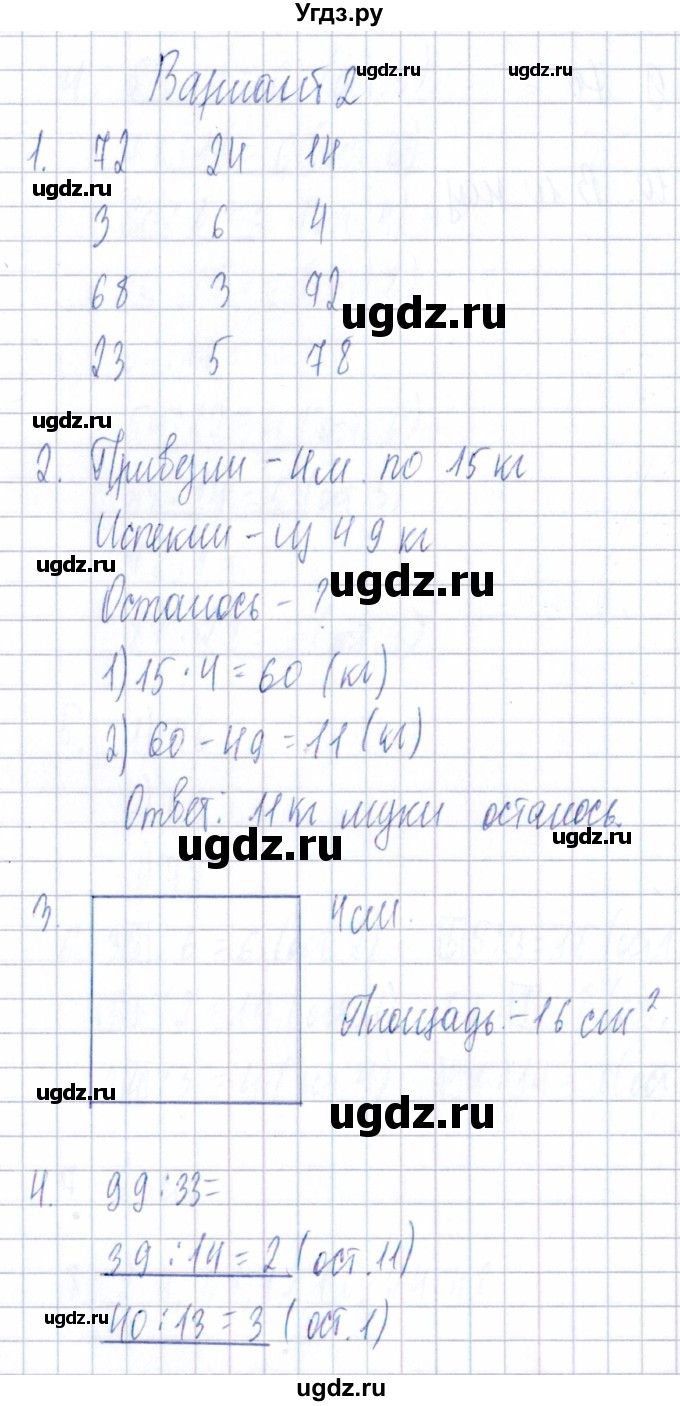 Угдз.ру
Вариант 2
ugdz.ru
ugdz.ru
1. 72 24 14
ugdz.ru
3 6 4
68 3 92
ugdz.ru
23 5 78
ugdz.ru
2. Привезли - 4 м. по 15 кг
Испекли - из 49 кг
ugdz.ru
ugdz.ru
Осталось - ?
1) 15 · 4 = 60 (кг)
2) 60 - 49 = 11 (кг)
Ответ: 11 кг муки осталось.
ugdz.ru
ugdz.ru
3. 4 см.
Площадь: - 16 см²
ugdz.ru
ugdz.ru
4. 99 : 33 =
39 : 14 = 2 (ост. 11)
ugdz.ru
40 : 13 = 3 (ост. 1)
ugdz.ru